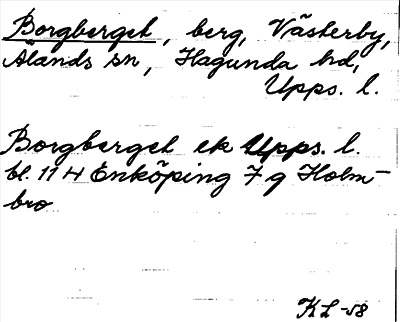 Borgberget, berg, Västerby,
Ålands sn, Hagunda hd,
Upps. l.
Borgberget ek Upps. l.
bl. 11 H Enköping 7 g Holm-
bro
KL -58